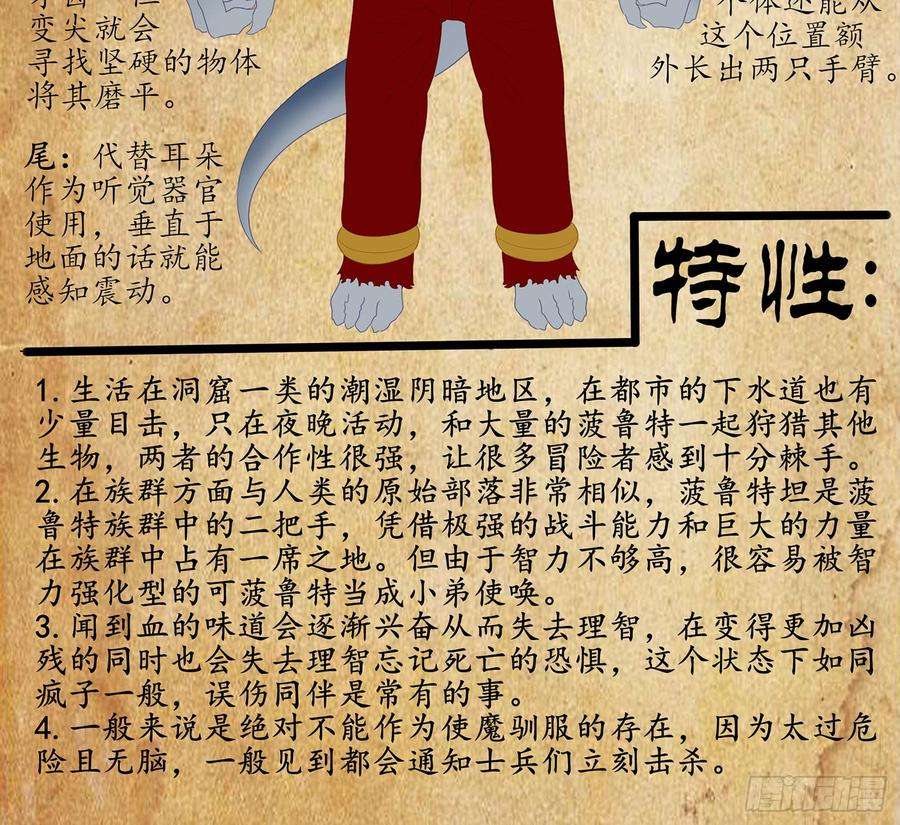 变尖就会
寻找坚硬的物体
将其磨平。
个体还能从
这个位置额
外长出两只手臂。
尾：代替耳朵
作为听觉器官
使用，垂直于
地面的话就能
感知震动。
特性：
1.生活在洞窟一类的潮湿阴暗地区，在都市的下水道也有
少量目击，只在夜晚活动，和大量的菠鲁特一起狩猎其他
生物，两者的合作性很强，让很多冒险者感到十分棘手。
2.在族群方面与人类的原始部落非常相似，菠鲁特坦是菠
鲁特族群中的二把手，凭借极强的战斗能力和巨大的力量
在族群中占有一席之地。但由于智力不够高，很容易被智
力强化型的可菠鲁特当成小弟使唤。
3.闻到血的味道会逐渐兴奋从而失去理智，在变得更加凶
残的同时也会失去理智忘记死亡的恐惧，这个状态下如同
疯子一般，误伤同伴是常有的事。
4.一般来说是绝对不能作为使魔驯服的存在，因为太过危
险且无脑，一般见到都会通知士兵们立刻击杀。
腾讯动漫